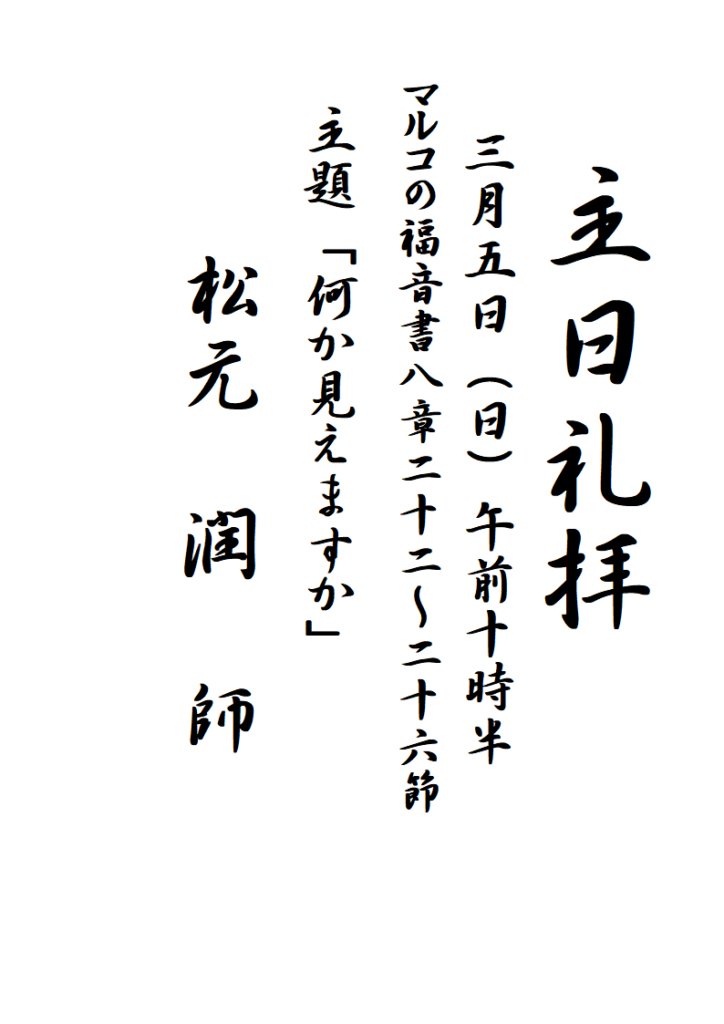 主日礼拝
三月五日（日）午前十時半
マルコの福音書八章二十二～二十六節
主題「何か見えますか」
松元　潤　師